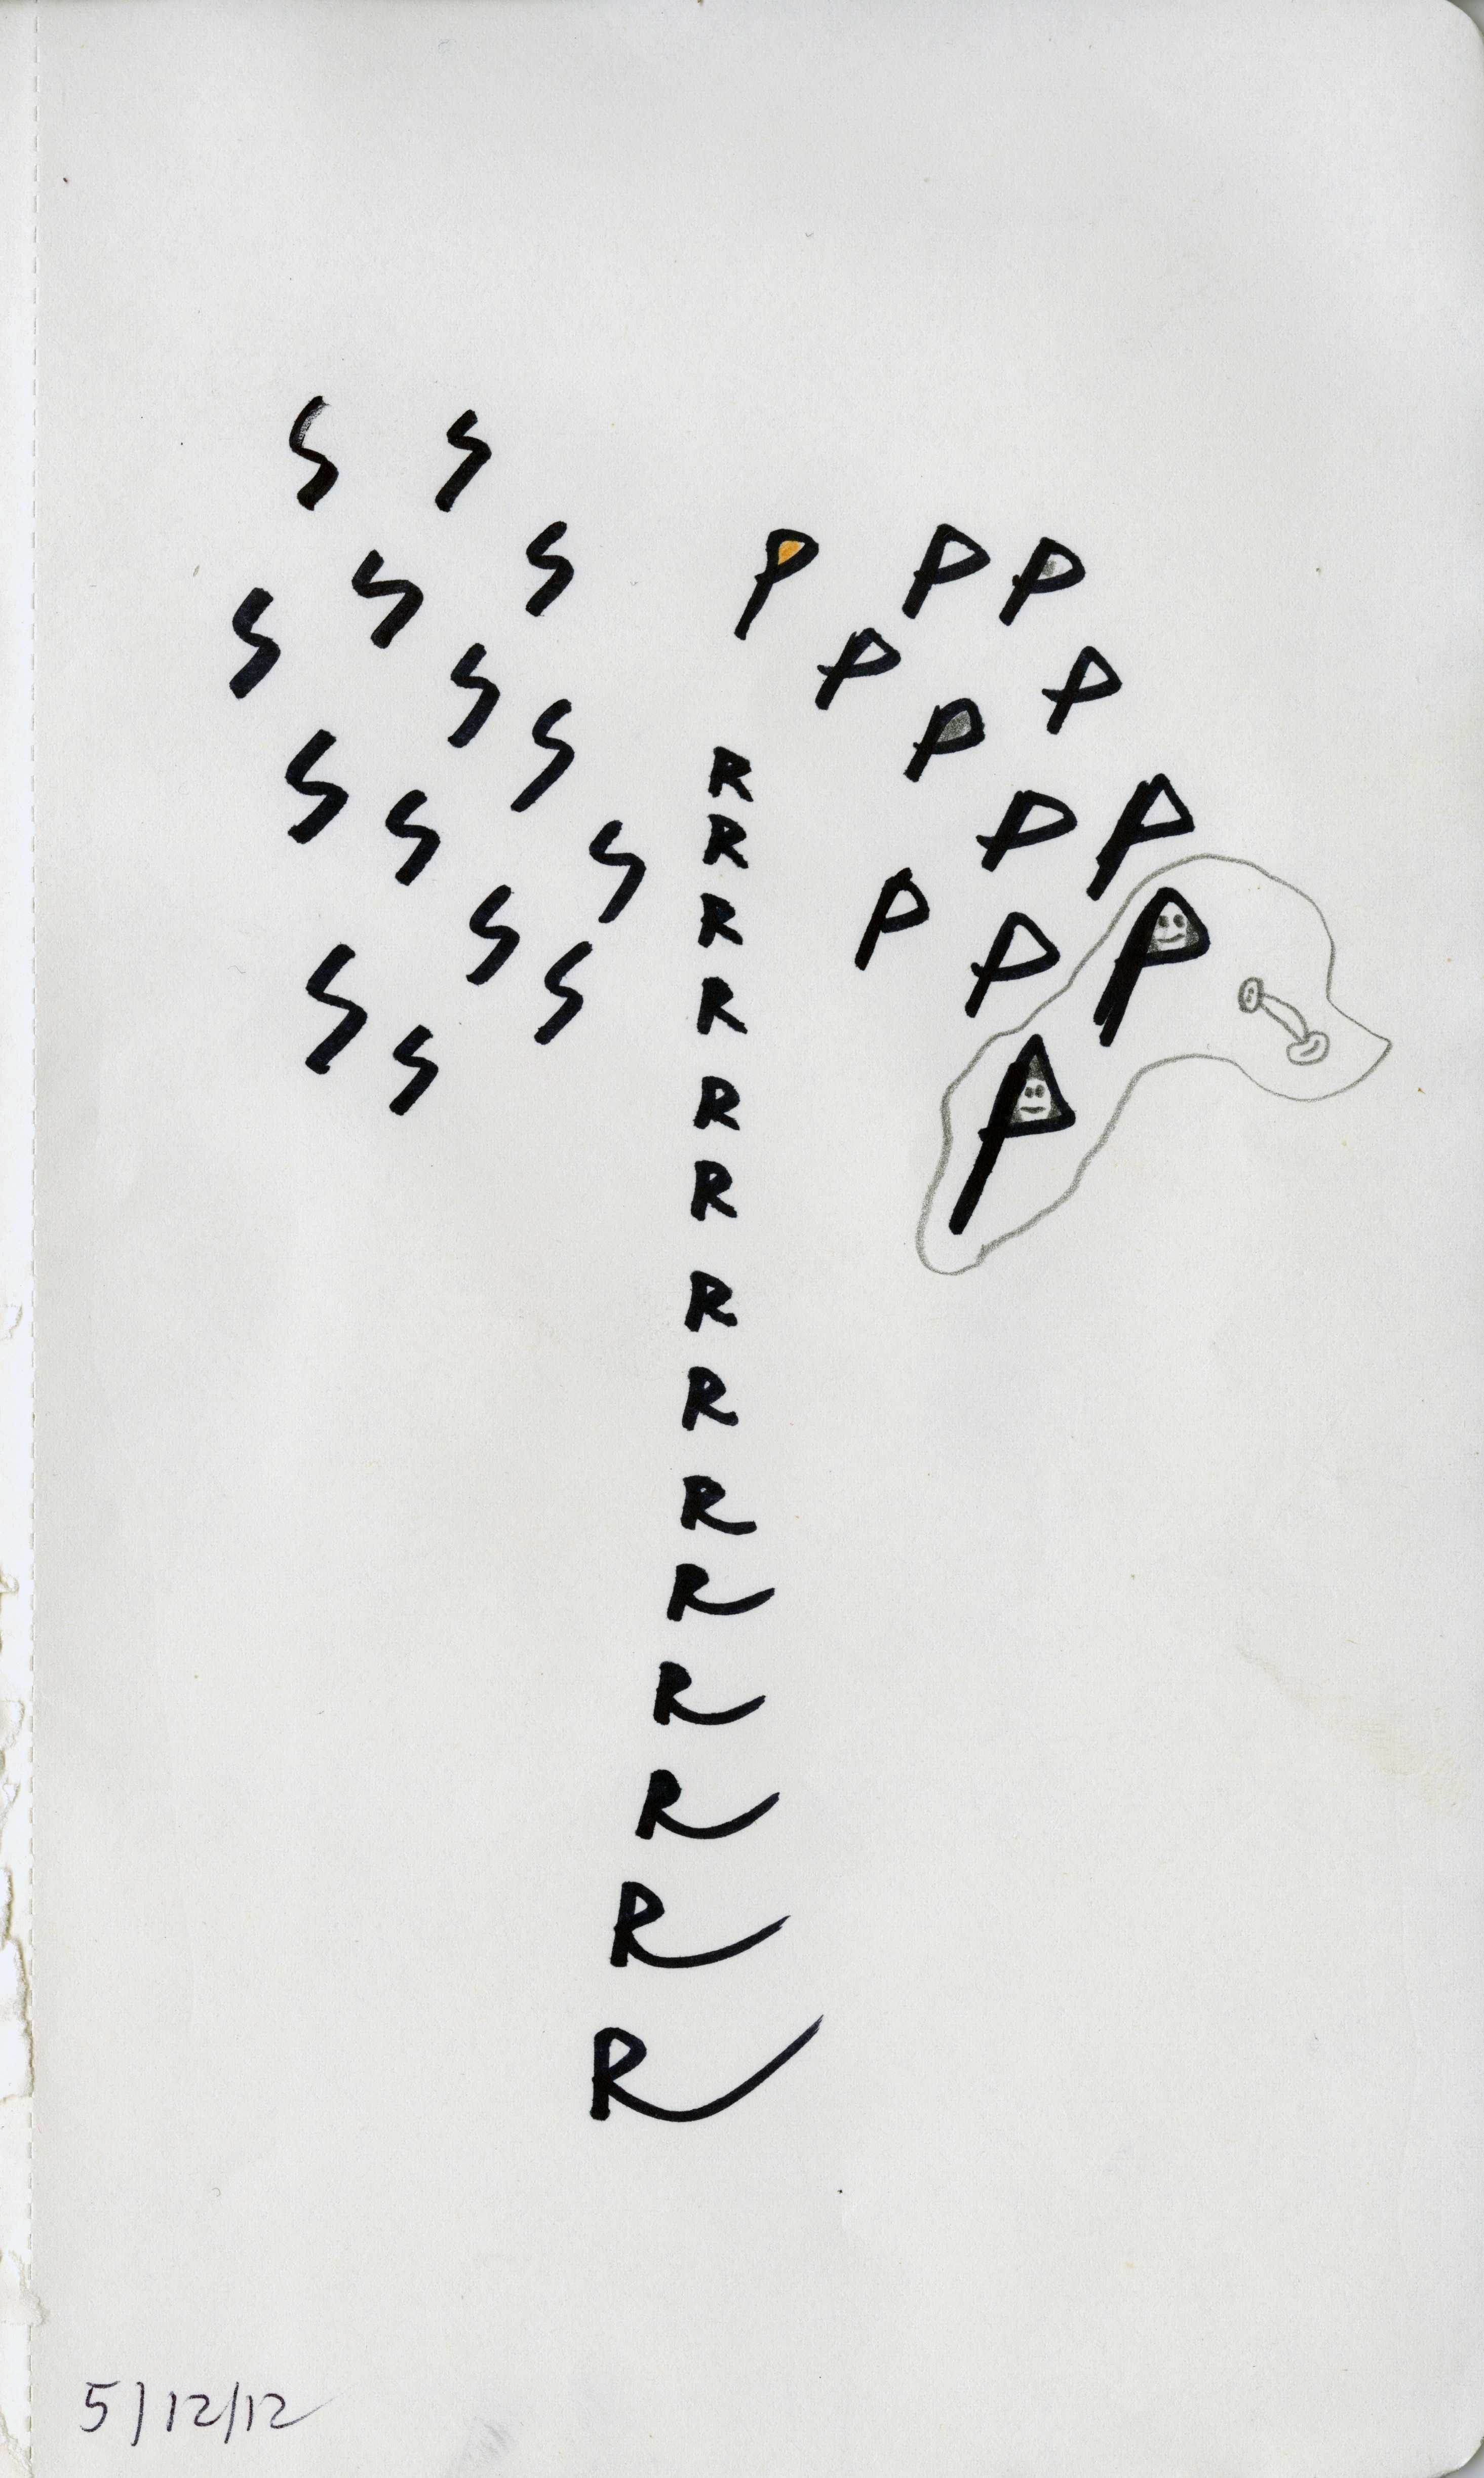 S S
S S P P P
S S P P
S S R P
S S R P P
S R P P P
S S R
S R P
R
R
R
R
R
R
R
R
R
5/12/12